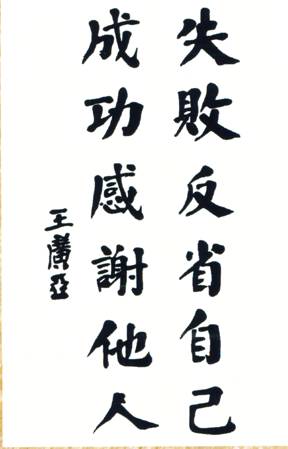 失敗反省自己
成功感謝他人
王廣亞